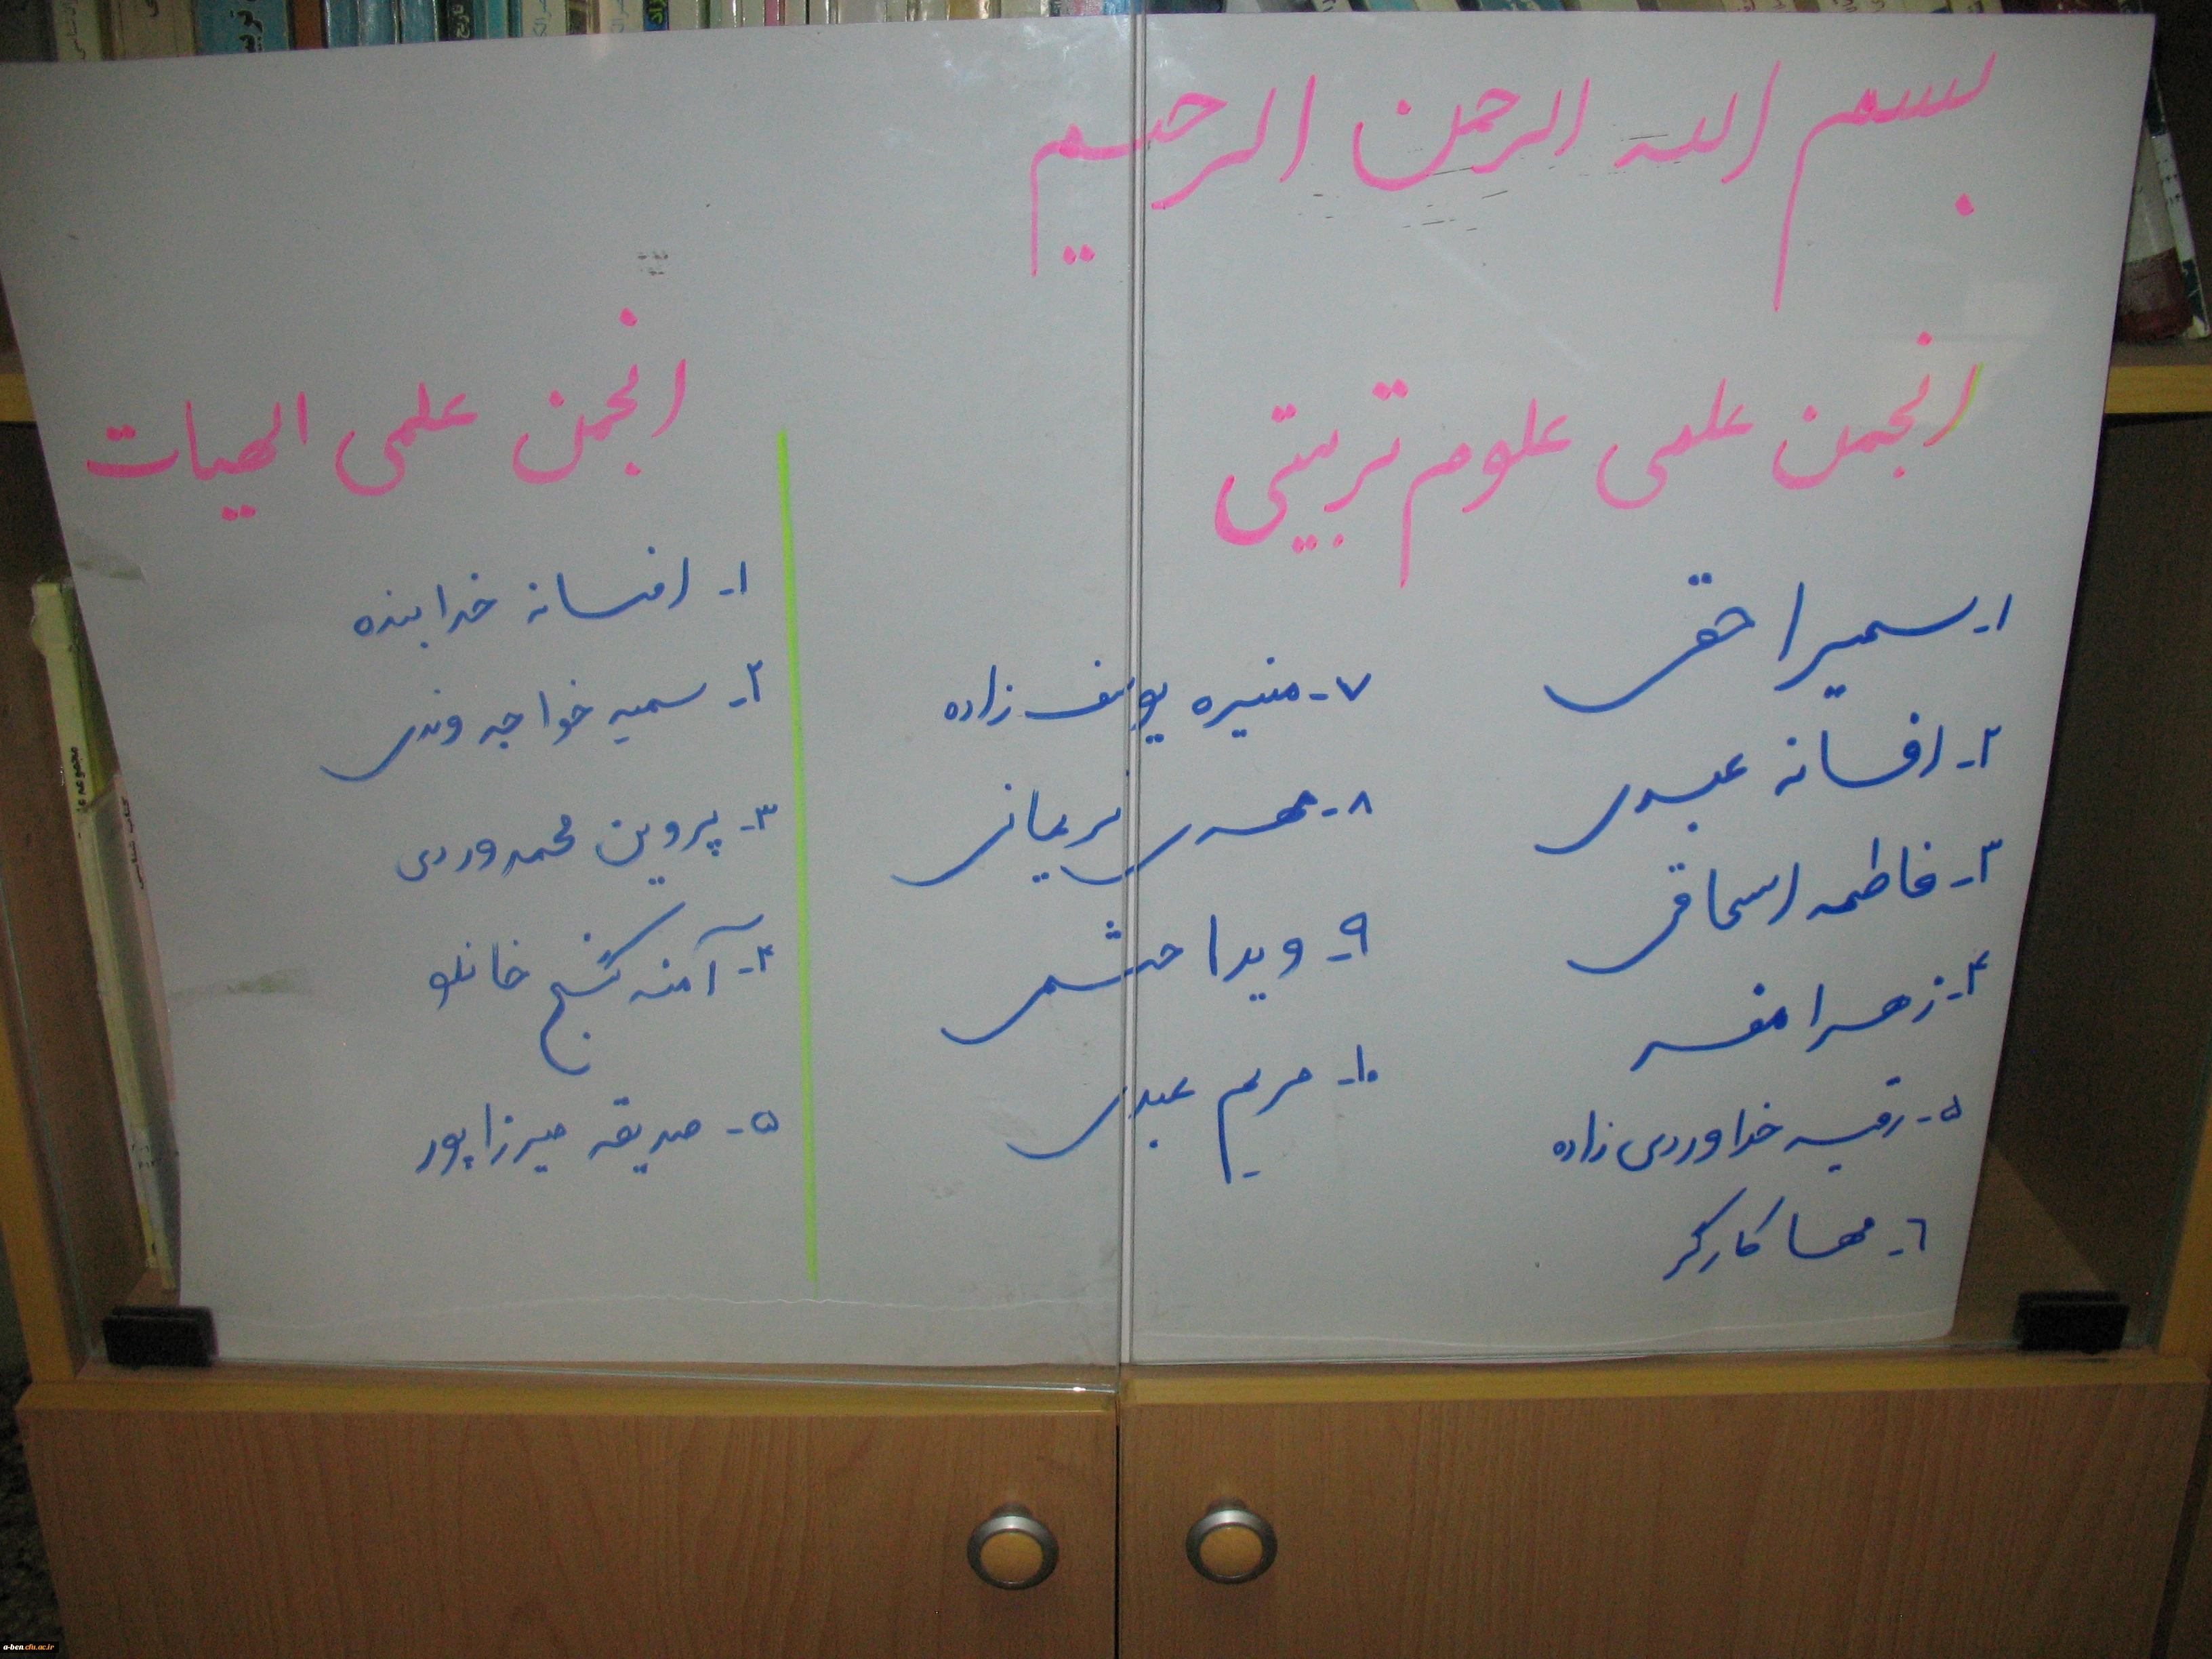 بسم الله الرحمن الرحیم
انجمن علمی علوم تربیتی
۱- سمیرا حقی
۲- افسانه عبدی
۳- فاطمه اسحاقی
۴- زهرا مفسر
۵- رقیه خداوردی زاده
۶- مهسا کارگر
۷- منیره یوسف زاده
۸- مهدی نریمانی
۹- ویدا حشمی
۱۰- مریم عبدی
انجمن علمی الهیات
۱- افسانه خدابنده
۲- سمیه خواجه وندی
۳- پروین محمدوردی
۴- آمنه گنج خانلو
۵- صدیقه میرزاپور
مجموعه
a-ben.cfu.ac.ir